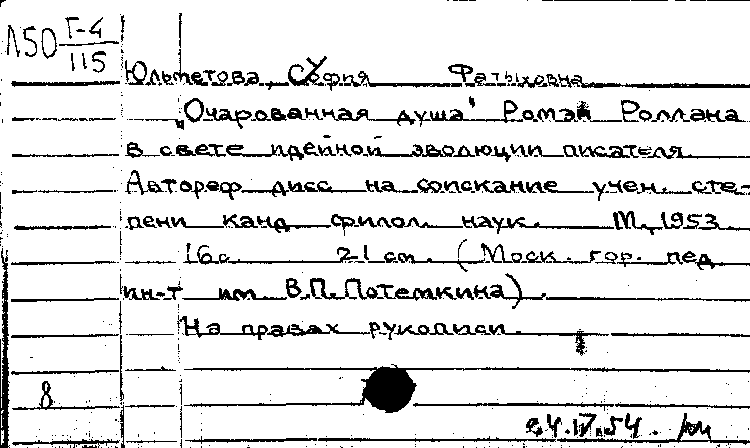 Л50 Г-4/115
Юльметова, София Фатыховна
„Очарованная душа" Ромэн Роллана
в свете идейной эволюции писателя.
Автореф. дисс. на соискание учен. сте-
пени канд. филол. наук. М., 1953
16 с. 21 см. (Моск. гор. пед.
ин-т им. В.П. Потемкина).
На правах рукописи.
8
24.IV.54.